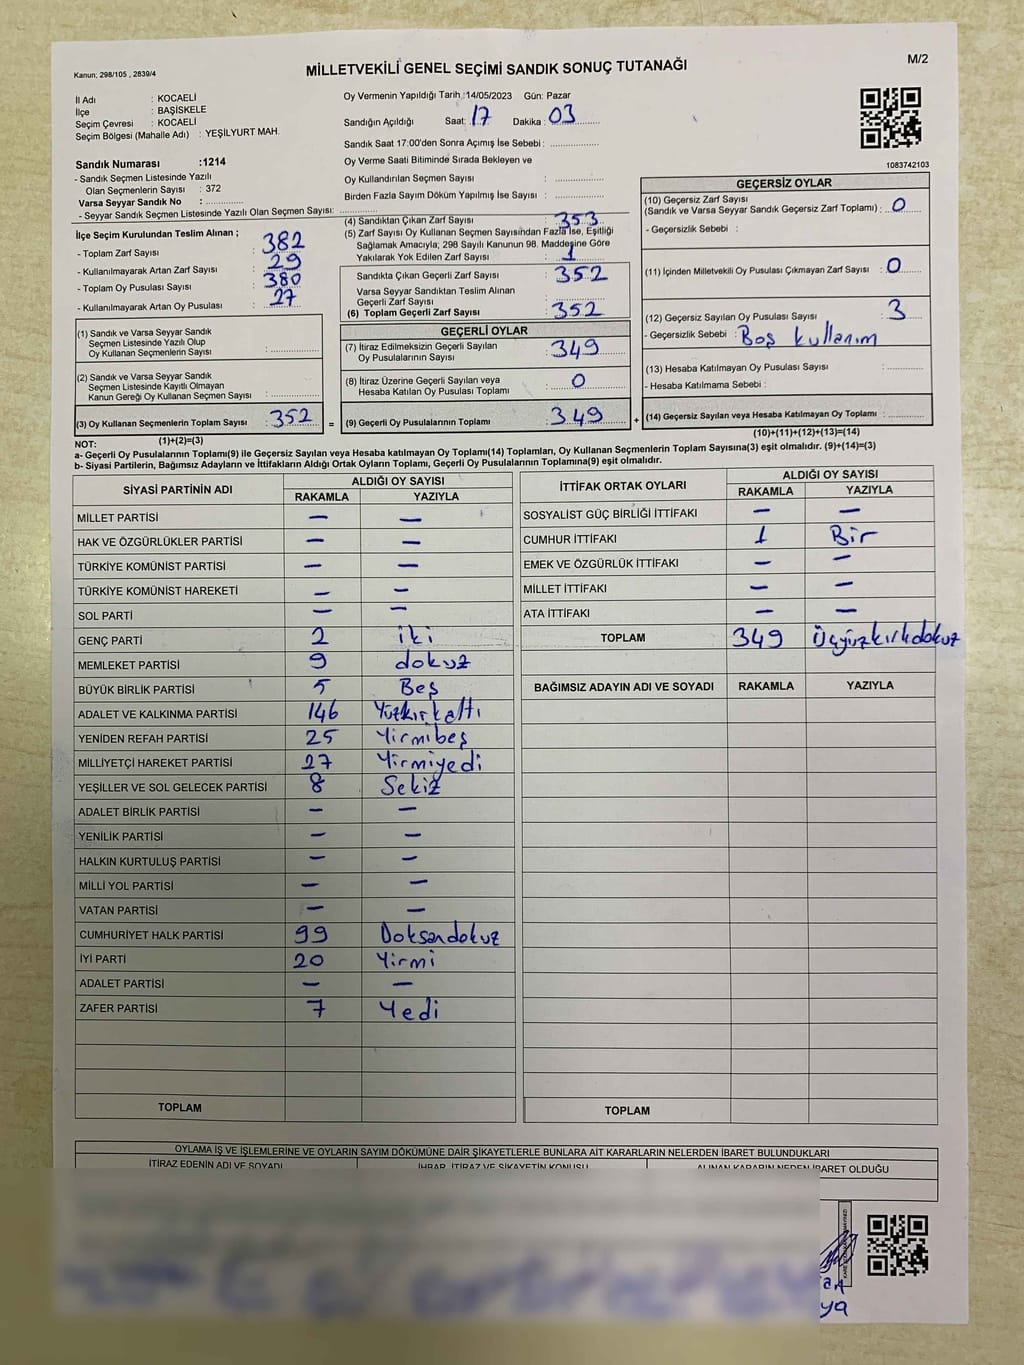 Kanun; 298/105 , 2839/4
MİLLETVEKİLİ GENEL SEÇİMİ SANDIK SONUÇ TUTANAĞI
M/2
İl Adı : KOCAELİ
İlçe : BAŞİSKELE
Seçim Çevresi : KOCAELİ
Seçim Bölgesi (Mahalle Adı) : YEŞİLYURT MAH.
Sandık Numarası :1214
- Sandık Seçmen Listesinde Yazılı
Olan Seçmenlerin Sayısı : 372
Varsa Seyyar Sandık No :
- Seyyar Sandık Seçmen Listesinde Yazılı Olan Seçmen Sayısı:
Oy Vermenin Yapıldığı Tarih :14/05/2023 Gün: Pazar
Sandığın Açıldığı Saat: 17 Dakika : 03
Sandık Saat 17:00'den Sonra Açımış İse Sebebi :
Oy Verme Saati Bitiminde Sırada Bekleyen ve
Oy Kullandırılan Seçmen Sayısı :
Birden Fazla Sayım Döküm Yapılmış İse Sayısı :
1083742103
İlçe Seçim Kurulundan Teslim Alınan ;
- Toplam Zarf Sayısı : 382
- Kullanılmayarak Artan Zarf Sayısı : 29
- Toplam Oy Pusulası Sayısı : 380
- Kullanılmayarak Artan Oy Pusulası : 27
(1) Sandık ve Varsa Seyyar Sandık
Seçmen Listesinde Yazılı Olup
Oy Kullanan Seçmenlerin Sayısı :
(2) Sandık ve Varsa Seyyar Sandık
Seçmen Listesinde Kayıtlı Olmayan
Kanun Gereği Oy Kullanan Seçmen Sayısı :
(3) Oy Kullanan Seçmenlerin Toplam Sayısı : 352
=
(4) Sandıktan Çıkan Zarf Sayısı : 353
(5) Zarf Sayısı Oy Kullanan Seçmen Sayısından Fazla İse, Eşitliği
Sağlamak Amacıyla; 298 Sayılı Kanunun 98. Maddesine Göre
Yakılarak Yok Edilen Zarf Sayısı : 1
Sandıkta Çıkan Geçerli Zarf Sayısı : 352
Varsa Seyyar Sandıktan Teslim Alınan
Geçerli Zarf Sayısı :
(6) Toplam Geçerli Zarf Sayısı : 352
GEÇERLİ OYLAR
(7) İtiraz Edilmeksizin Geçerli Sayılan
Oy Pusulalarının Sayısı : 349
(8) İtiraz Üzerine Geçerli Sayılan veya
Hesaba Katılan Oy Pusulası Toplamı : 0
(9) Geçerli Oy Pusulalarının Toplamı : 349
+
GEÇERSİZ OYLAR
(10) Geçersiz Zarf Sayısı
(Sandık ve Varsa Seyyar Sandık Geçersiz Zarf Toplamı) : 0
- Geçersizlik Sebebi :
(11) İçinden Milletvekili Oy Pusulası Çıkmayan Zarf Sayısı : 0
(12) Geçersiz Sayılan Oy Pusulası Sayısı : 3
- Geçersizlik Sebebi : Boş kullanım
(13) Hesaba Katılmayan Oy Pusulası Sayısı :
- Hesaba Katılmama Sebebi :
(14) Geçersiz Sayılan veya Hesaba Katılmayan Oy Toplamı :
NOT: (1)+(2)=(3)
(10)+(11)+(12)+(13)=(14)
a- Geçerli Oy Pusulalarının Toplamı(9) ile Geçersiz Sayılan veya Hesaba katılmayan Oy Toplamı(14) Toplamları, Oy Kullanan Seçmenlerin Toplam Sayısına(3) eşit olmalıdır. (9)+(14)=(3)
b- Siyasi Partilerin, Bağımsız Adayların ve İttifakların Aldığı Ortak Oyların Toplamı, Geçerli Oy Pusulalarının Toplamına(9) eşit olmalıdır.
SİYASİ PARTİNİN ADI ALDIĞI OY SAYISI
RAKAMLA YAZIYLA
MİLLET PARTİSİ — —
HAK VE ÖZGÜRLÜKLER PARTİSİ — —
TÜRKİYE KOMÜNİST PARTİSİ — —
TÜRKİYE KOMÜNİST HAREKETİ — —
SOL PARTİ — —
GENÇ PARTİ 2 iki
MEMLEKET PARTİSİ 9 dokuz
BÜYÜK BİRLİK PARTİSİ 5 Beş
ADALET VE KALKINMA PARTİSİ 146 Yüzkırkaltı
YENİDEN REFAH PARTİSİ 25 Yirmibeş
MİLLİYETÇİ HAREKET PARTİSİ 27 Yirmiyedi
YEŞİLLER VE SOL GELECEK PARTİSİ 8 Sekiz
ADALET BİRLİK PARTİSİ — —
YENİLİK PARTİSİ — —
HALKIN KURTULUŞ PARTİSİ — —
MİLLİ YOL PARTİSİ — —
VATAN PARTİSİ — —
CUMHURİYET HALK PARTİSİ 99 Doksandokuz
İYİ PARTİ 20 Yirmi
ADALET PARTİSİ — —
ZAFER PARTİSİ 7 Yedi
TOPLAM
İTTİFAK ORTAK OYLARI ALDIĞI OY SAYISI
RAKAMLA YAZIYLA
SOSYALİST GÜÇ BİRLİĞİ İTTİFAKI — —
CUMHUR İTTİFAKI 1 Bir
EMEK VE ÖZGÜRLÜK İTTİFAKI — —
MİLLET İTTİFAKI — —
ATA İTTİFAKI — —
TOPLAM 349 Üçyüzkırkdokuz
BAĞIMSIZ ADAYIN ADI VE SOYADI RAKAMLA YAZIYLA
TOPLAM
OYLAMA İŞ VE İŞLEMLERİNE VE OYLARIN SAYIM DÖKÜMÜNE DAİR ŞİKAYETLERLE BUNLARA AİT KARARLARIN NELERDEN İBARET BULUNDUKLARI
İTİRAZ EDENİN ADI VE SOYADI İHBAR, İTİRAZ VE ŞİKAYETİN KONUSU ALINAN KARARIN NEDEN İBARET OLDUĞU